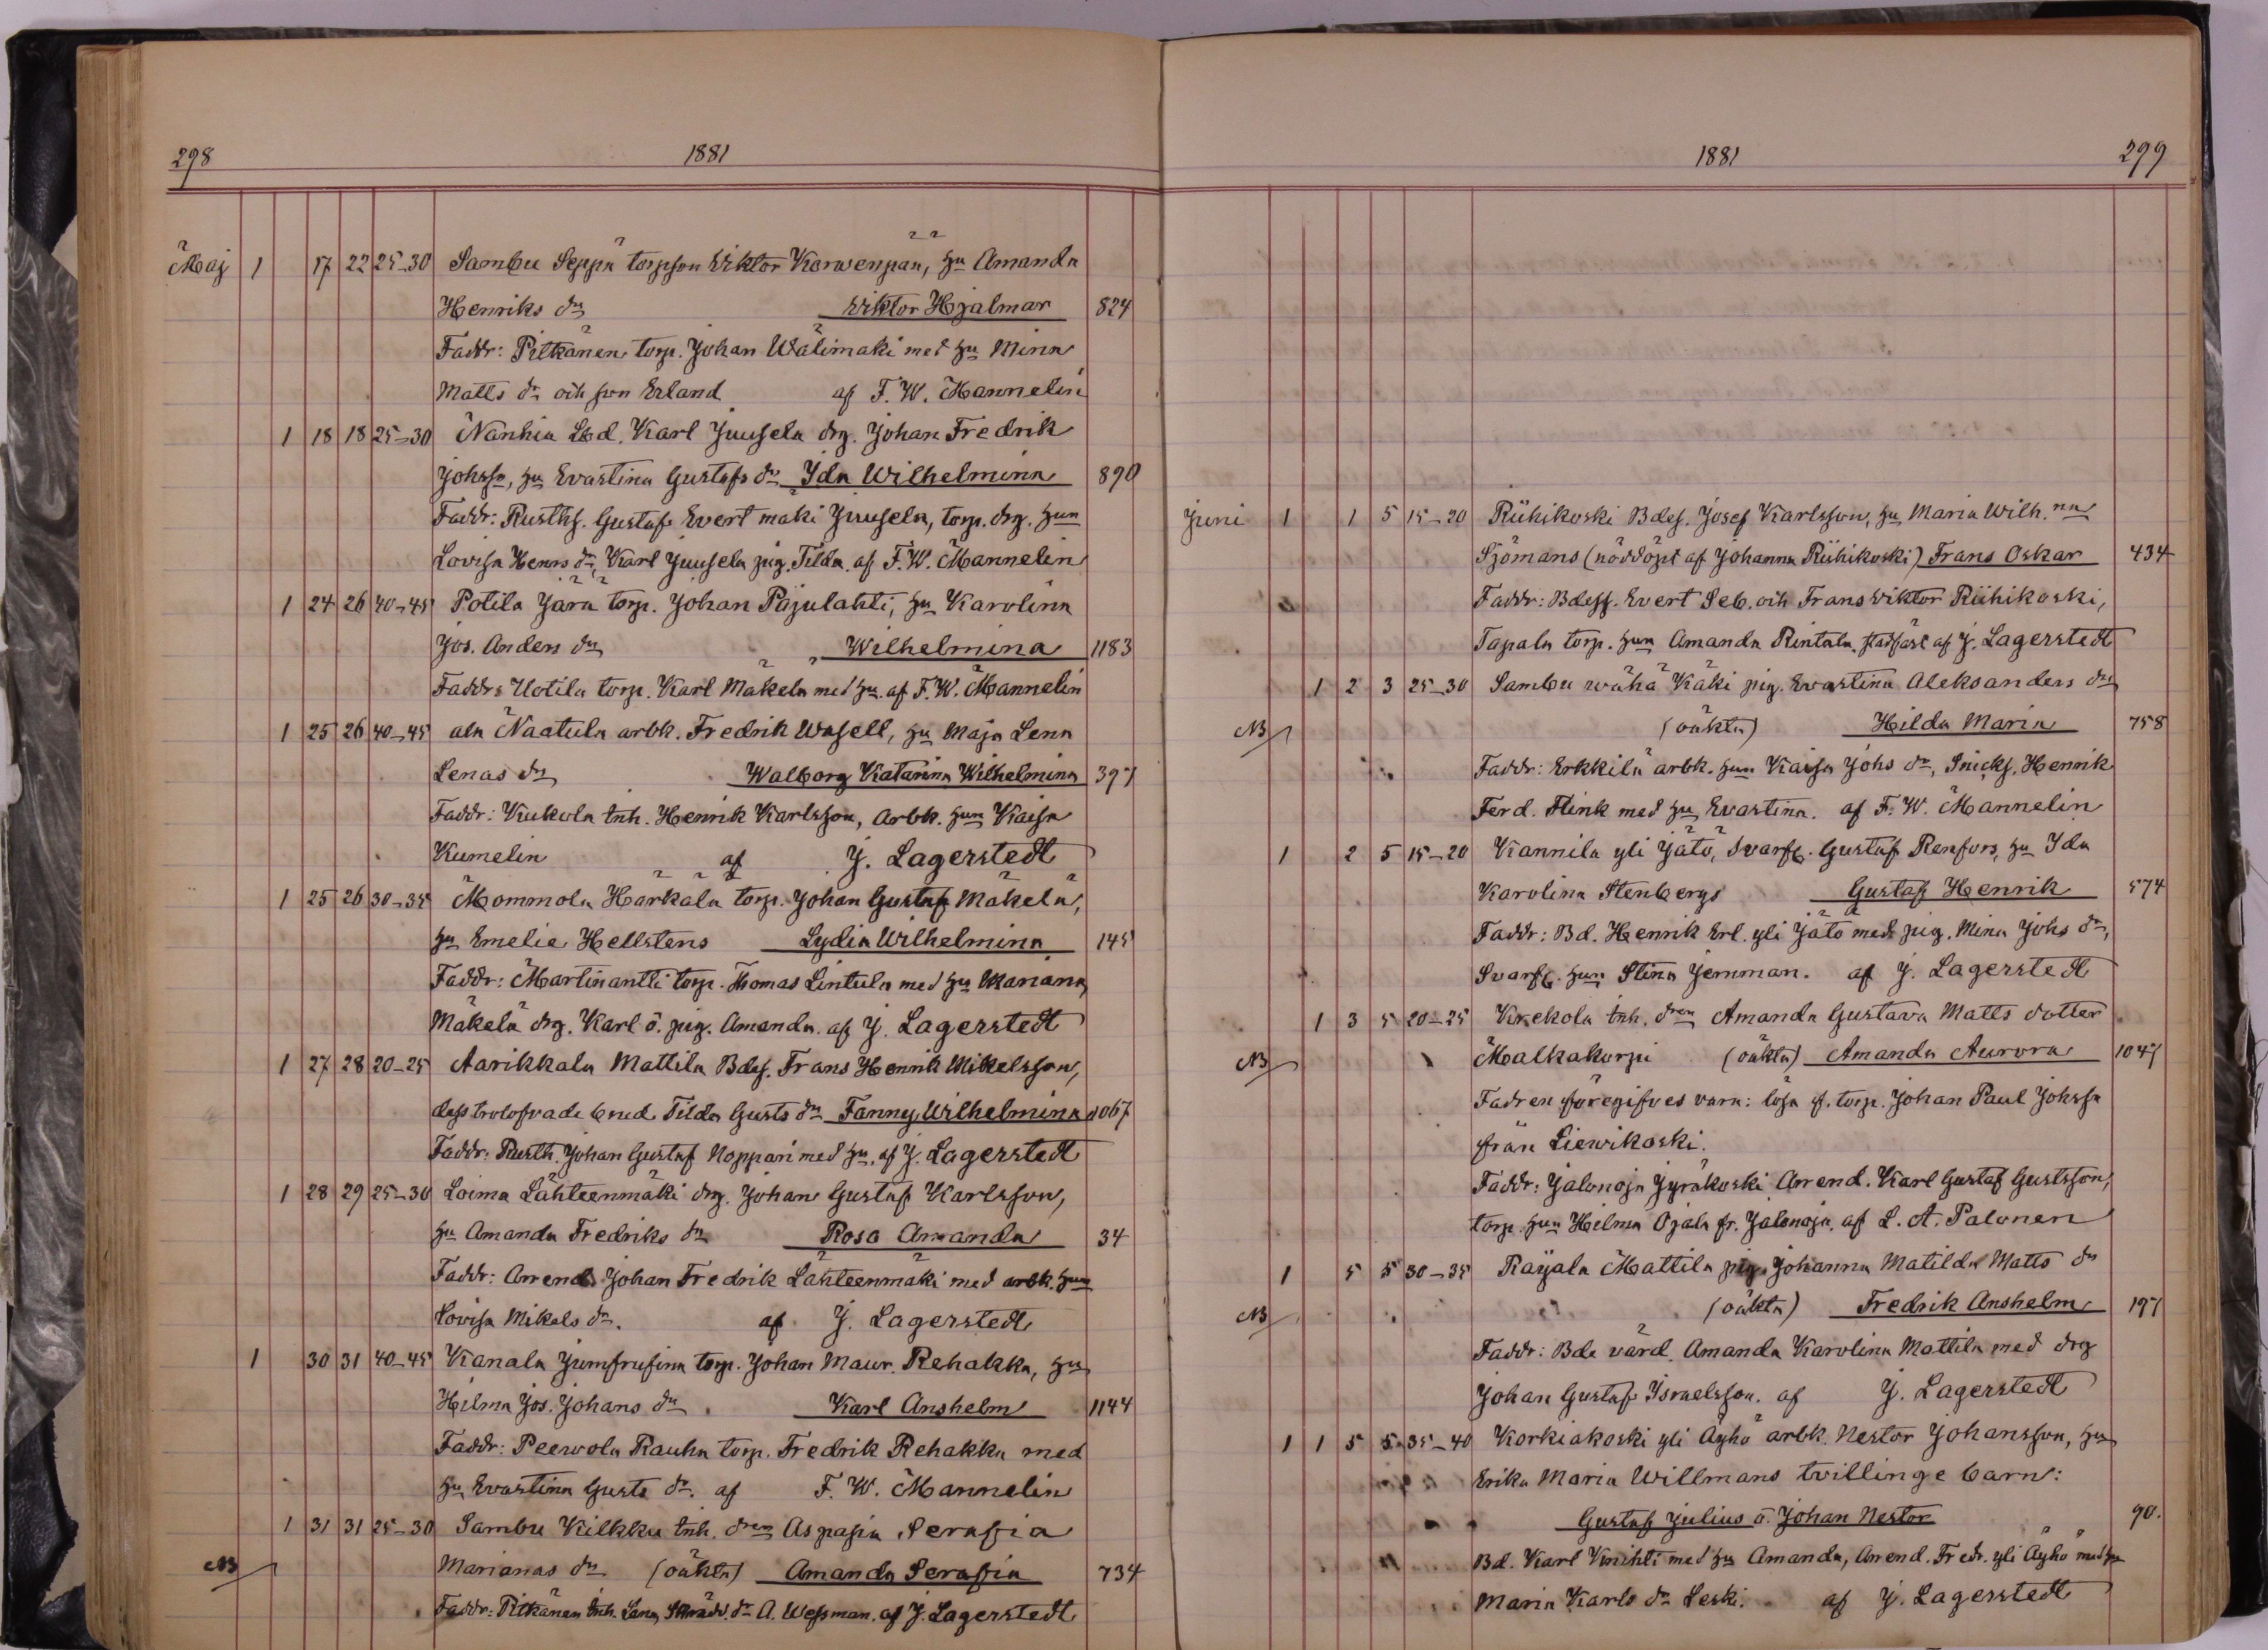 298 1881
Maj 1 17 22 25-30 Sambu Seppä torpson Viktor Korwenpää, hu Amanda
Henriks dr Viktor Hjalmar 824
Faddr: Pitkänen torp. Johan Wälimäki med hu Mina
Matts dr och son Erland af F. W. Mannelin
1 18 18 25-30 Nanhia Lbd. Karl Juusela drg. Johan Fredrik
Johsso, hu Evastina Gustafs dr Ida Wilhelmina 890
Faddr: Rusths. Gustaf Evert maki Juusela, torp. drg. hun
Lovisa Henrs dr, Karl Juusela pig. Tilda. af F. W. Mannelin
1 24 26 40-45 Potila Jara torp. Johan Pajulahti, hu Karolina
Jos. Anders dr Wilhelmina 1183
Faddr: Uotila torp. Karl Mäkelä med hu. af F. W. Mannelin
1 25 26 40-45 ala Naatula arbk. Fredrik Wasell, hu Maja Lena
Lenas dr Walborg Katarina Wilhelmina 397
Faddr: Kukola inh. Henrik Karlsson, Arbk. hun Kaisa
Kumelin af J. Lagerstedt
1 25 26 30-35 Mommola Härkälä torp. Johan Gustaf Mäkelä,
hu Emelie Hellstens Lydia Wilhelmina 145
Faddr: Martinantti torp. Thomas Lintula med hu Mariana,
Mäkelä drg. Karl o. pig. Amanda. af J. Lagerstedt
1 27 28 20-25 Aarikkala Mattila Bdes. Frans Henrik Mikelsson,
dess trolofvade brud Tilda Gusts dr Fanny Wilhelmina 1067
Faddr: Rusth. Johan Gustaf Noppari med hu. af J. Lagerstedt
1 28 29 25-30 Loima Lähteenmäki drg. Johan Gustaf Karlsson,
hu Amanda Fredriks dr Rosa Amanda 34
Faddr: Arrend. Johan Fredrik Lähteenmäki med arbk. hun
Lovisa Mikels dr. af J. Lagerstedt
1 30 31 40-45 Kanala Jumfrufina torp. Johan Maur. Rehakka, hu
Hilma Jos. Johans dr Karl Anshelm 1144
Faddr: Peewola Rauha torp. Fredrik Rehakka med
hu Evastina Gusts dr. af F. W. Mannelin
1 31 31 25-30 Sambu Kilkku inh. dren Aspasia Serafia
NB Marianas dr (oäkta) Amanda Serafia 734
Faddr: Pitkänen inh. Lena, Skrädd. dr A. Wessman. af J. Lagerstedt
1881 299
Juni 1 1 5 15-20 Riihikoski Bdes. Josef Karlsson, hu Maria Wilh.na
Sjömans (nöddöpt af Johanna Riihikoski) Frans Oskar 434
Faddr: Bdess. Evert Seb. och Frans Viktor Riihikoski,
Tapala torp. hun Amanda Rintala. stadfäst af J. Lagerstedt
1 2 3 25-30 Sambu wähä Käki pig. Evastina Aleksanders dr
NB (oäkta) Hilda Maria 758
Faddr: Erkkilä arbk. hun Kaisa Johs dr, Snicks. Henrik
Ferd. Flink med hu Evastina. af F. W. Mannelin
1 2 5 15-20 Kannila yli Jätö, Svarf. Gustaf Renfors, hu Ida
Karolina Stenbergs Gustaf Henrik 574
Faddr: Bd. Henrik Erl. yli Jätö med pig. Mina Johs dr,
Svarf. hun Stina Jernman. af J. Lagerstedt
1 3 5 20-25 Krekola inh. dren Amanda Gustava Matts dotter
NB Malkakorpi (oäkta) Amanda Aurora 1047
Fadren föregifves vara: lösa f. torp. Johan Paul Johsso
från Liewikoski.
Faddr: Jalonoja Jyräkoski Arrend. Karl Gustaf Gustsson,
torp. hun Hilma Ojala fr. Jalonoja. af L. A. Palonen
1 5 5 30-35 Rayala Mattila pig. Johanna Matilda Matts dr
NB (oäkta) Fredrik Anshelm 197
Faddr: Bde värd. Amanda Karolina Mattila med drg
Johan Gustaf Israelsson. af J. Lagerstedt
1 1 5 5 35-40 Korkiakoski yli Äyhö arbk. Nestor Johansson, hu
Erika Maria Willmans tvillinge barn:
Gustaf Julius o. Johan Nestor 90.
Bd. Karl Knihti med hu Amanda, Arrend. Fredr. yli Äyhö med hu
Maria Karls dr Leski. af J. Lagerstedt